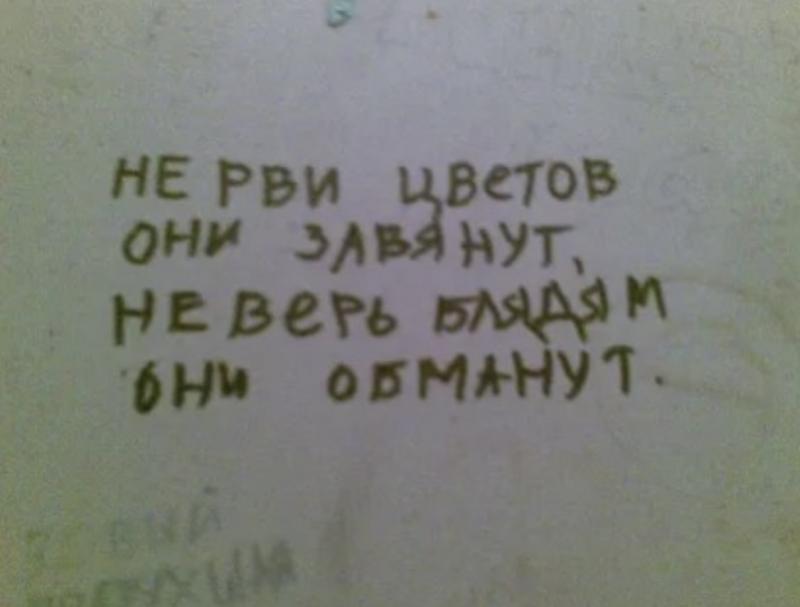 НЕ РВИ ЦВЕТОВ
ОНИ ЗАВЯНУТ,
НЕ ВЕРЬ БЛЯДЯМ
ОНИ ОБМАНУТ.